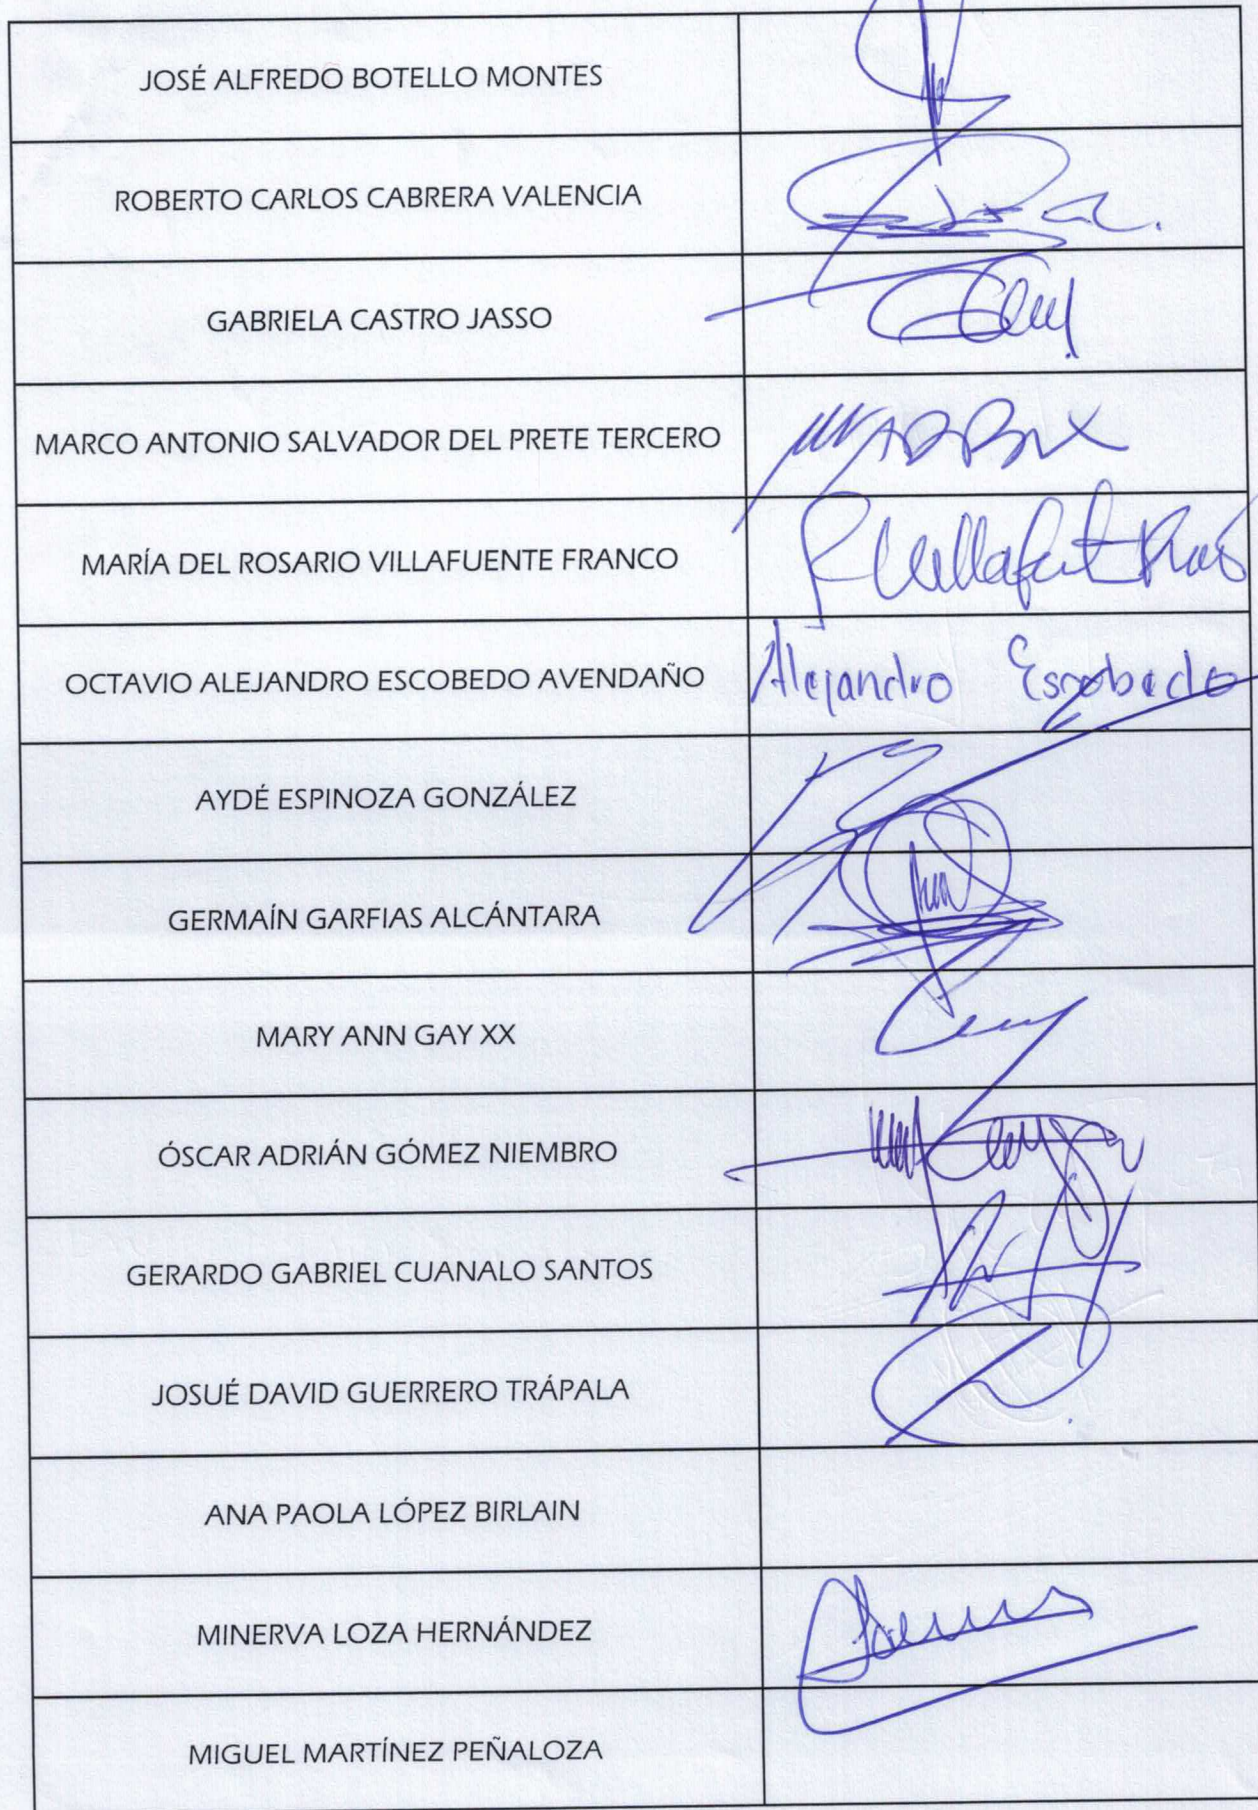 JOSÉ ALFREDO BOTELLO MONTES
ROBERTO CARLOS CABRERA VALENCIA
GABRIELA CASTRO JASSO
MARCO ANTONIO SALVADOR DEL PRETE TERCERO
MARÍA DEL ROSARIO VILLAFUENTE FRANCO
OCTAVIO ALEJANDRO ESCOBEDO AVENDAÑO
Alejandro Escobedo
AYDÉ ESPINOZA GONZÁLEZ
GERMAÍN GARFIAS ALCÁNTARA
MARY ANN GAY XX
ÓSCAR ADRIÁN GÓMEZ NIEMBRO
GERARDO GABRIEL CUANALO SANTOS
JOSUÉ DAVID GUERRERO TRÁPALA
ANA PAOLA LÓPEZ BIRLAIN
MINERVA LOZA HERNÁNDEZ
MIGUEL MARTÍNEZ PEÑALOZA